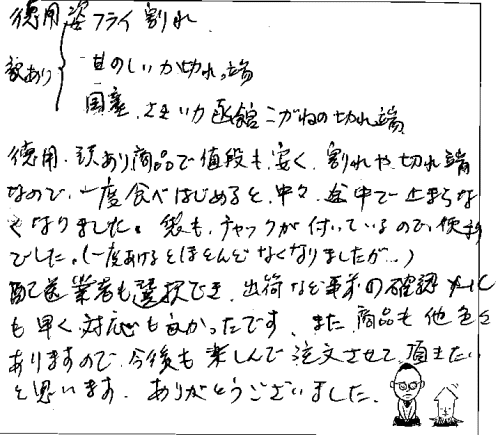 徳用姿フライ割れ
訳あり
甘のしいか切れっ端
国産、さきいか函館こがねの切れ端
徳用・訳あり商品で値段も安く、割れや切れ端
なので、一度食べはじめると、中々、途中で止まらな
くなりました。袋も、チャックが付いているので、便利
でした。(一度あけるとほとんどなくなりましたが…)
配送業者も選択でき、出荷など事前の確認メール
も早く対応も良かったです、また、商品も他色々
ありますので、今後も楽しんで注文させて頂きたい
と思います。ありがとうございました。